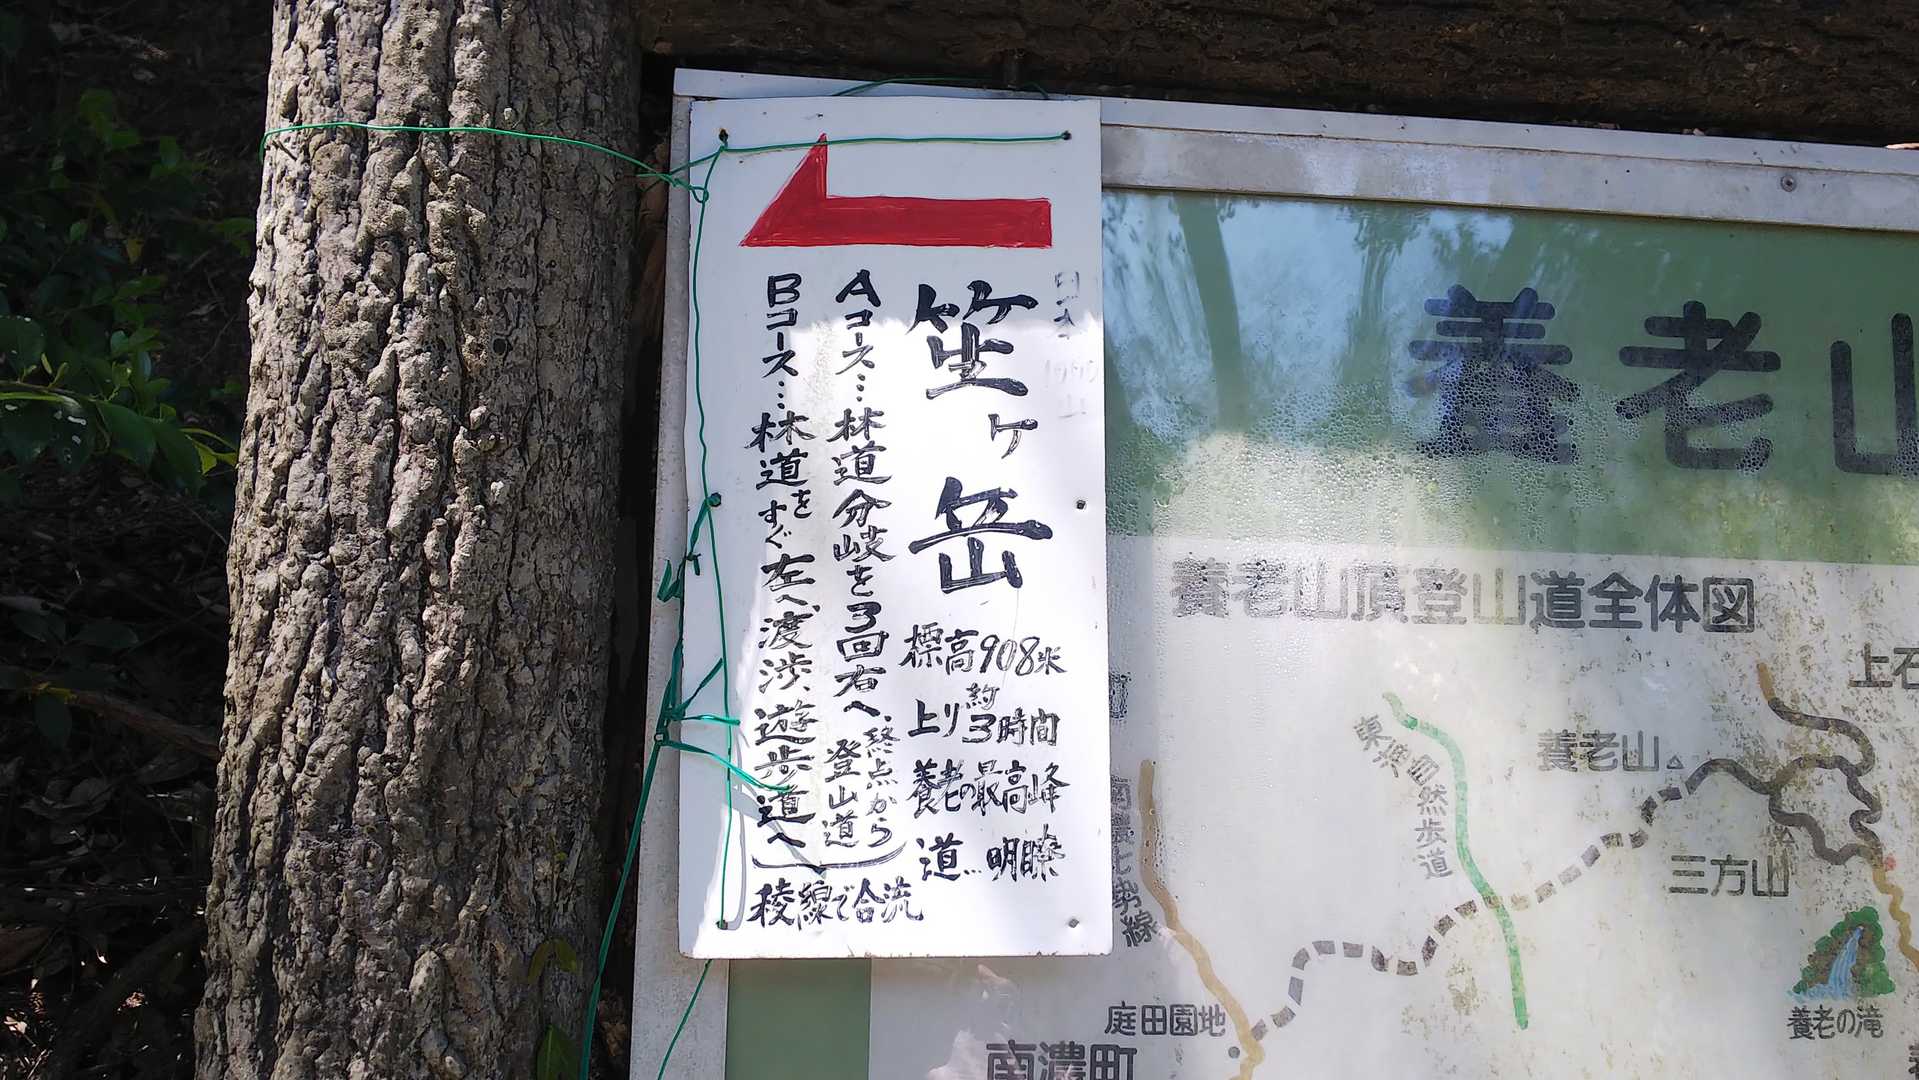 笙ヶ岳
標高908米
上り約3時間
養老の最高峰
道…明瞭
Aコース…林道分岐を3回右へ、終点から登山道
Bコース…林道をすぐ左へ渡渉、遊歩道へ
稜線で合流
養老山
養老山頂登山道全体図
上石
養老山
東海自然歩道
三方山
養老の滝
庭田園地
南濃町